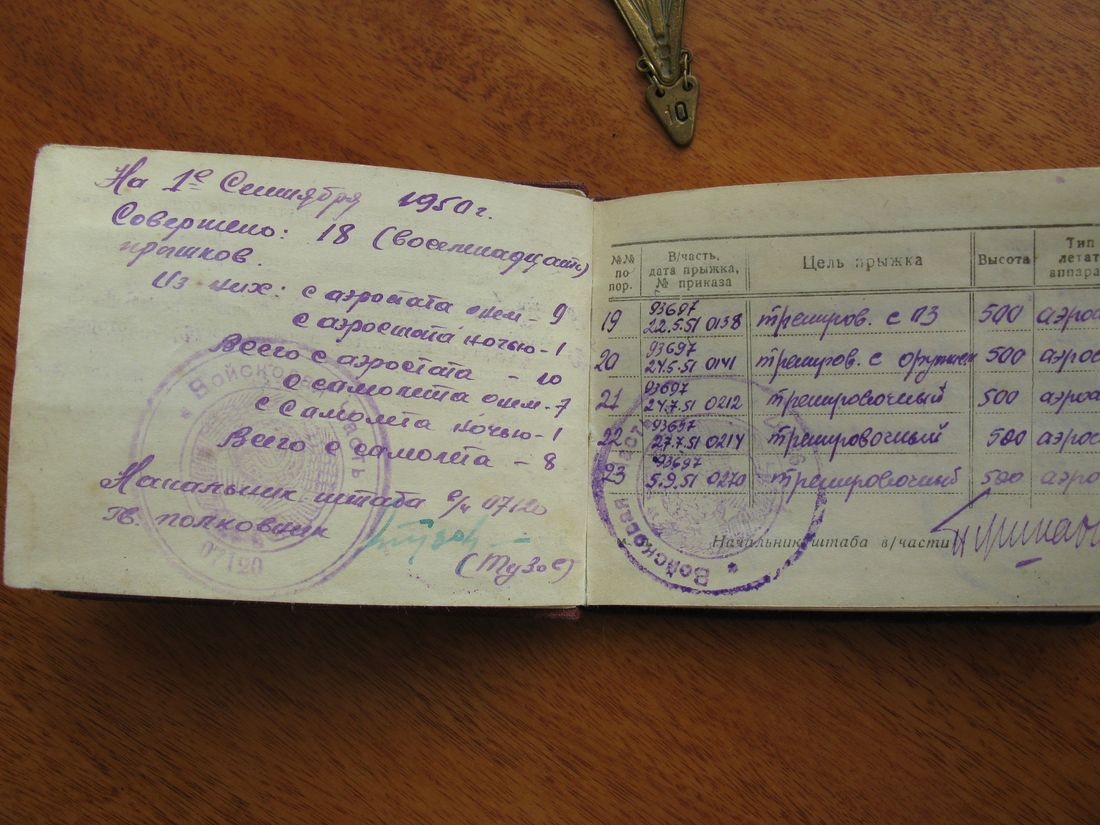 10
На 1е Сентября 1950 г.
Совершено: 18 (восемнадцать)
прыжков.
Из них: с аэростата днем - 9
с аэростата ночью - 1
Всего с аэростата - 10
с самолета днем - 7
с самолета ночью - 1
Всего с самолета - 8
Начальник штаба в/ч 07120
Гв. полковник
(Тузов)
Войсковая часть
07120
№№ по пор. В/часть, дата прыжка, № приказа Цель прыжка Высота Тип летат аппара
19 93697 22.5.51 0138 трениров. с ПЗ 500 аэрос
20 93697 24.5.51 0141 трениров. с оружием 500 аэрос
21 93697 24.7.51 0212 тренировочный 500 аэрос
22 93697 27.7.51 0214 тренировочный 500 аэрос
23 93697 5.9.51 0270 тренировочный 500 аэро
Начальник штаба в/части
Войсковая часть